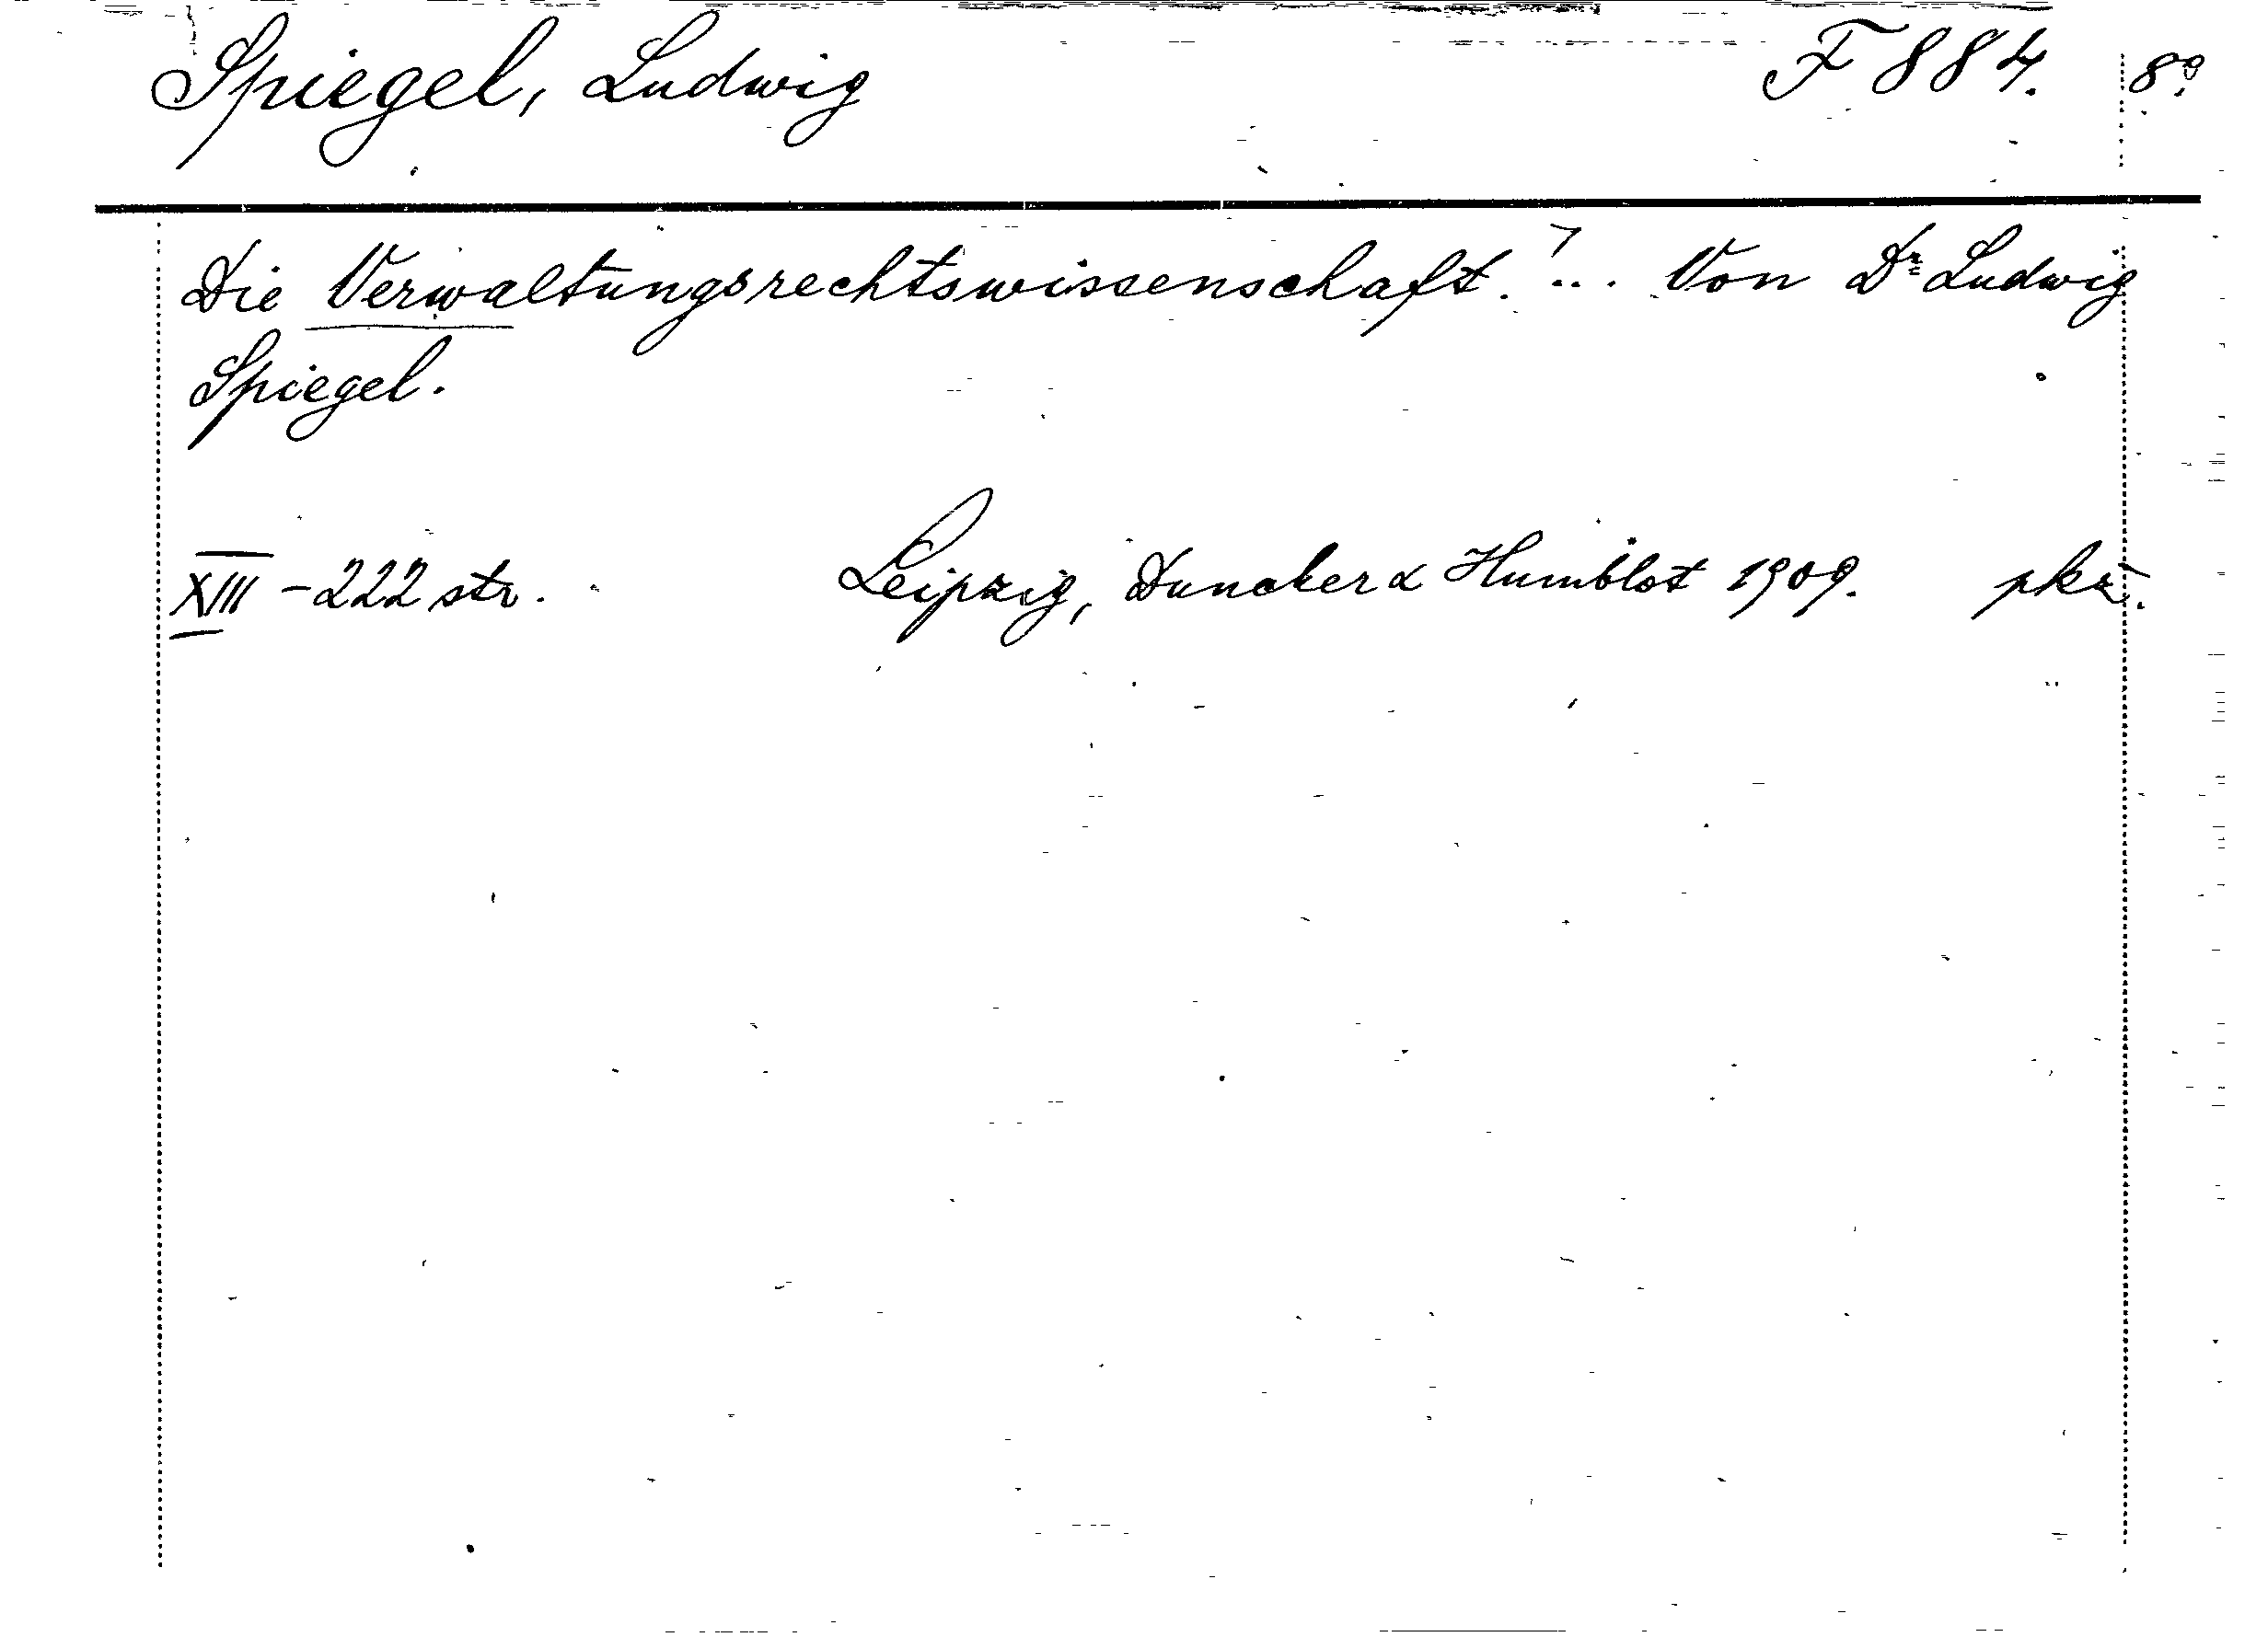 Spiegel, Ludwig F 884. 8°.
Die Verwaltungsrechtswissenschaft. ... Von Dr Ludwig
Spiegel.
XIII - 222 str. Leipzig, Duncker & Humblot 1909. pkž.